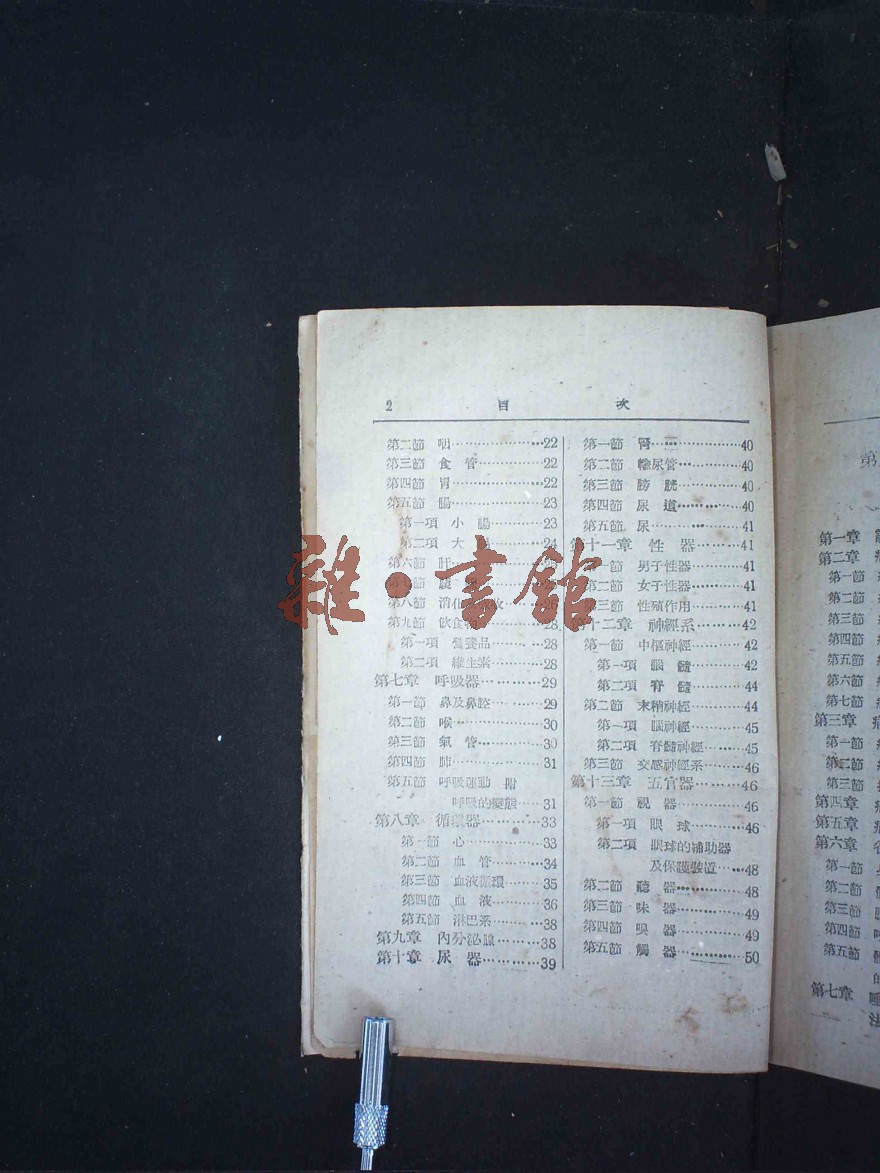 2 目 次
第二節 咽 22
第三節 食管 22
第四節 胃 22
第五節 腸 23
第一項 小腸 23
第二項 大 24
第六節 肝
第八節 消化 26
第九節 飲食 28
第一項 營養品 28
第二項 維生素 28
第七章 呼吸器 29
第一節 鼻及鼻腔 29
第二節 喉 30
第三節 氣管 30
第四節 肺 31
第五節 呼吸運動 附
呼吸的變態 31
第八章 循環器 33
第一節 心 33
第二節 血管 34
第三節 血液循環 35
第四節 血液 36
第五節 淋巴系 38
第九章 內分泌腺 38
第十章 尿器 39
第一節 腎 40
第二節 輸尿管 40
第三節 膀胱 40
第四節 尿道 40
第五節 尿 41
第十一章 性器 41
第一節 男子性器 41
第二節 女子性器 41
第三節 性殖作用 41
第十二章 神經系 42
第一節 中樞神經 42
第一項 腦髓 42
第二項 脊髓 44
第二節 末稍神經 44
第一項 腦神經 45
第二項 脊髓神經 45
第三節 交感神經系 46
第十三章 五官器 46
第一節 視器 46
第一項 眼球 46
第二項 眼球的補助器
及保護裝置 48
第二節 聽器 48
第三節 味器 49
第四節 嗅器 49
第五節 觸器 50
雜·書館
第
第一章
第二章
第一節
第二節
第三節
第四節
第五節
第六節
第七節
第三章
第一節
第二節
第三節
第四章
第五章
第六章
第一節
第二節
第三節
第四節
第五節
的
第七章
法